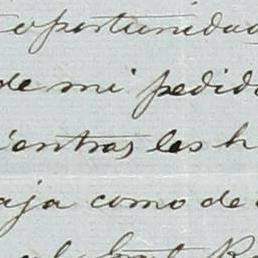 oportunidad
de mi pedido
ientras les h
aja como de